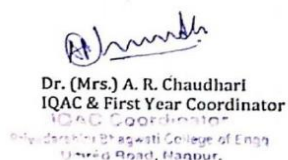 Dr. (Mrs.) A. R. Chaudhari
IQAC & First Year Coordinator
IQAC Coordinator
Priyadarshini Bhagwati College of Engg
Umred Road, Nagpur.